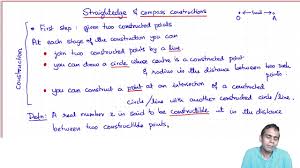 Straightedge & compass constructions
• First step : given two constructed points
O ← unit → A
At each stage of the construction you can
• join two constructed points by a line.
• you can draw a circle whose centre is a constructed point
& radius is the distance between two such points
• you can construct a point at an intersection of a constructed
circle/line with another constructed circle/line.
Construction
Defn: A real number x is said to be constructible if is the distance
between two constructible points.